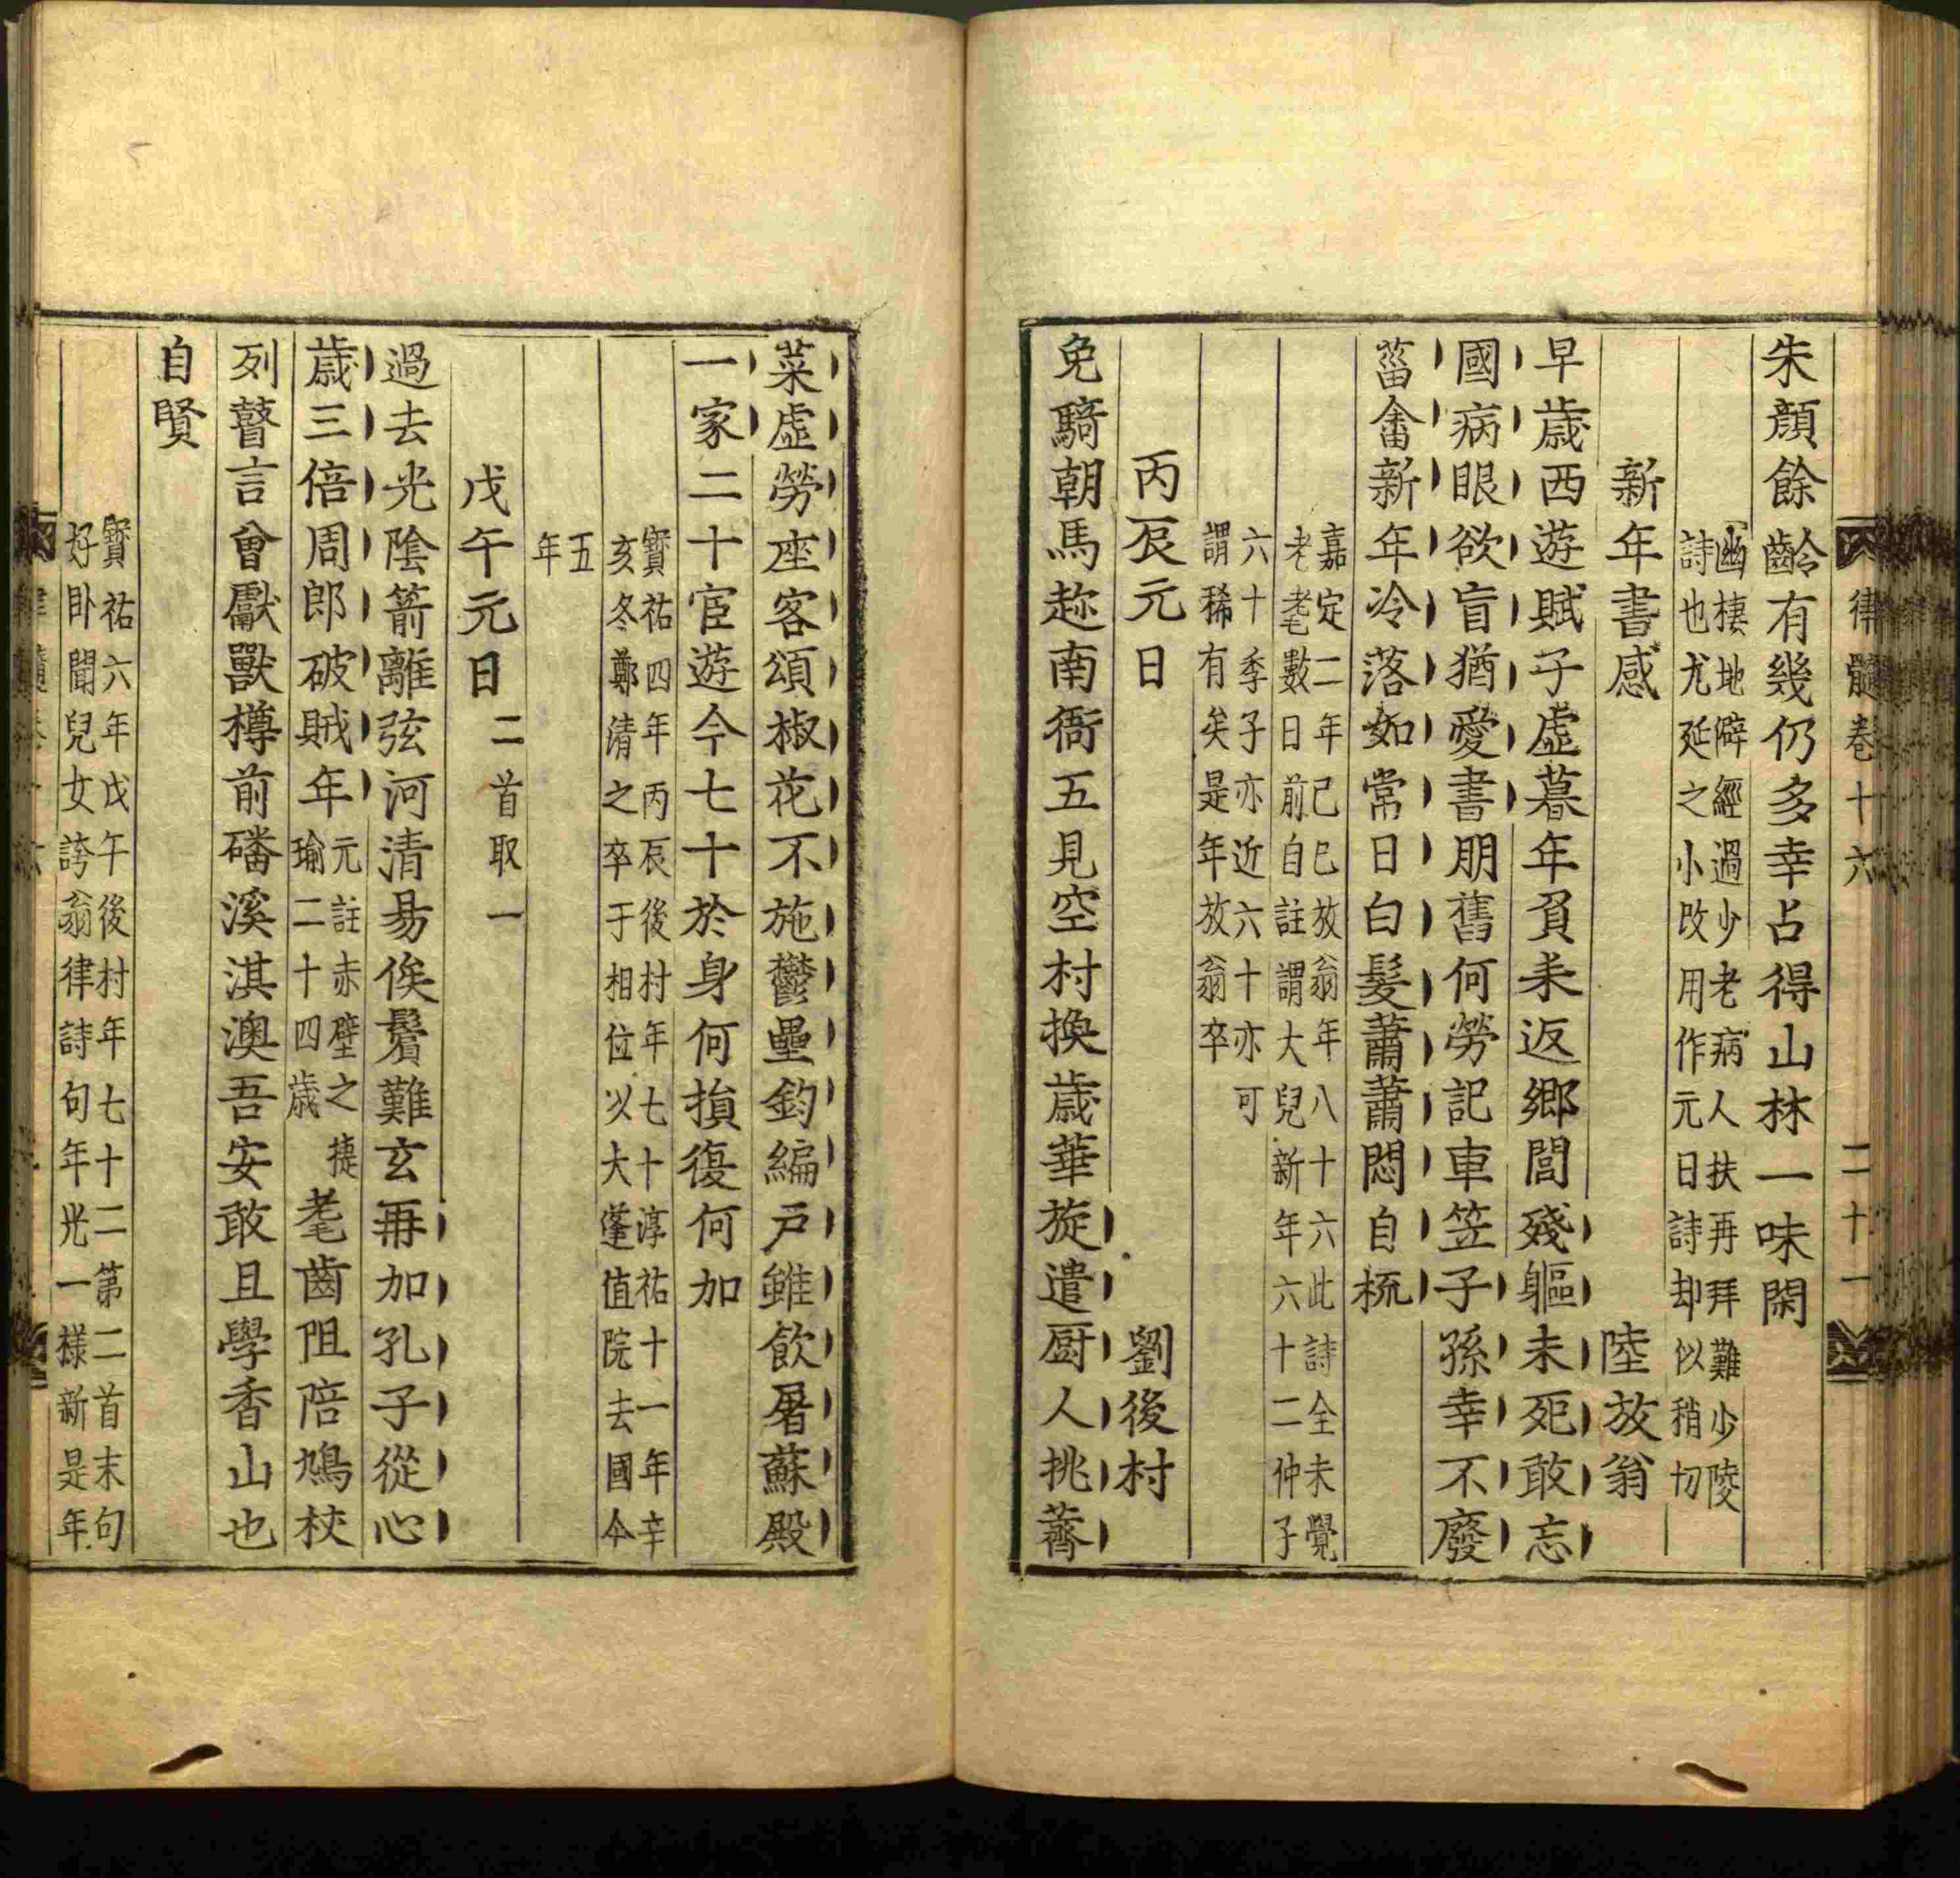 律髓卷十六 二十一
朱顏餘齡有幾仍多幸占得山林一味閑
幽棲地僻經過少老病人扶再拜難少陵
詩也尤延之小改用作元日詩却似稍切
新年書感 陸放翁
早歲西遊賦子虛暮年負耒返鄉閭殘軀未死敢忘
國病眼欲盲猶愛書朋舊何勞記車笠子孫幸不廢
菑畬新年冷落如常日白髮蕭蕭悶自梳
嘉定二年己巳放翁年八十六此詩全未覺
老耄數日前自註謂大兒新年六十二仲子
六十季子亦近六十亦可
謂稀有矣是年放翁卒
丙辰元日 劉後村
免騎朝馬趂南衙五見空村換歲華旋遣厨人挑薺
菜虛勞座客頌椒花不施鬱壘鈞編戶雖飲屠蘇殿
一家二十宦遊今七十於身何損復何加
寶祐四年丙辰後村年七十淳祐十一年辛
亥冬鄭清之卒于相位以大蓬值院去國今
五
年
戊午元日 二首取一
過去光陰箭離弦河清易俟鬢難玄再加孔子從心
歲三倍周郎破賊年 元註赤壁之捷瑜二十四歲 耄齒阻陪鳩杖
列瞽言曾獻獸樽前磻溪淇澳吾安敢且學香山也
自賢
寶祐六年戊午後村年七十二第二首末句
好卧聞兒女誇翁律詩句年光一樣新是年